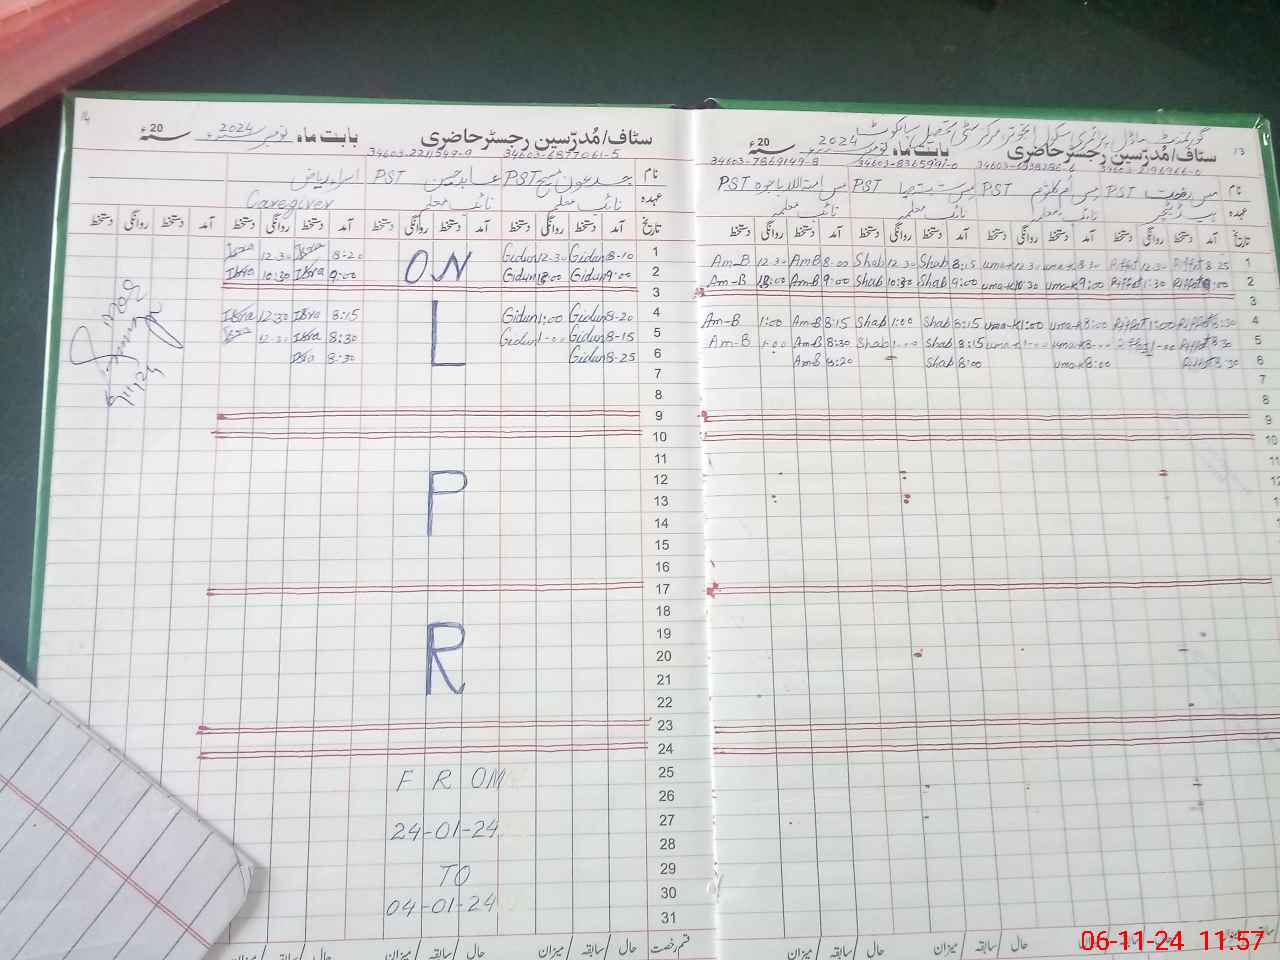 گورنمنٹ ماڈل پرائمری سکول
13
سٹاف/مُدرّسین رجسٹر حاضری بابت ماہ نومبر 2024 سنہ 20ء
34603-7869149-8 34603-8365991-0
نام مس رفعت PST مس ام کلثوم PST PST مس امتہ اللہ باجوہ PST
عہدہ ہیڈ ٹیچر نائب معلمہ نائب معلمہ نائب معلمہ
تاریخ آمد دستخط روانگی دستخط آمد دستخط روانگی دستخط آمد دستخط روانگی دستخط آمد دستخط روانگی دستخط
Am-B 12.30 Am-B 8:00 Shab 12.30 Shab 8:15 uma-k 12.30 uma-k 8:30 Riffat 12.30 Riffat 8:25 1
Am-B Am-B 9:00 Shab 10:30 Shab 9:00 uma-k 10:30 uma-k 9:00 Riffat 1:30 Riffat 9:00 2
3
Am-B 1:00 Am-B 8:15 Shab 1:00 Shab 8:15 uma-k 1:00 uma-k 8:00 Riffat 1:00 Riffat 8:30 4
Am-B 1:00 Am-B 8:30 Shab 1:00 Shab 8:15 uma-k 1:00 uma-k 8:00 Riffat 8:30 5
Am-B 8:20 Shab 8:00 uma-k 8:00 Riffat 8:30 6
7
8
9
10
11
12
13
17
سٹاف/مُدرّسین رجسٹر حاضری بابت ماہ نومبر 2024 سنہ 20ء
34603-2211549-9 34603-6877061-5
نام جدعون مسیح PST عابد حسین PST اسراء ریاض
عہدہ نائب معلم نائب معلم Caregiver
تاریخ آمد دستخط روانگی دستخط آمد دستخط روانگی دستخط آمد دستخط روانگی دستخط آمد دستخط روانگی دستخط
Isra 12.30 Isra 8:20 ON Gidun 12.30 Gidun 8-10 1
Isra 10:30 Isra 9:00 Gidun Gidun 9:00 2
3
Isra 12:30 Isra 8:15 L Gidun 1:00 Gidun 8-20 4
Isra 12.30 Isra 8:30 Gidun 1:00 Gidun 8-15 5
Isra 8:30 Gidun 8-25 6
7
8
9
10
11
P 12
13
14
15
16
17
18
R 19
20
21
22
23
24
FROM 25
26
24-01-24 27
28
TO 29
04-01-24 30
31
قسم رخصت حال / سابقہ / میزان حال / سابقہ / میزان
06-11-24 11:57